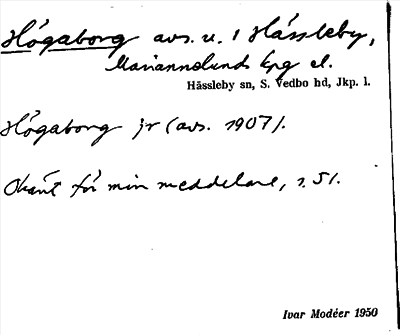 Högaborg avs. u. 1 Hässleby,
Mariannelunds kpg el.
Hässleby sn, S. Vedbo hd, Jkp. l.
Högaborg jr (avs. 1907).
Okänt för min meddelare, s. 51.
Ivar Modéer 1950